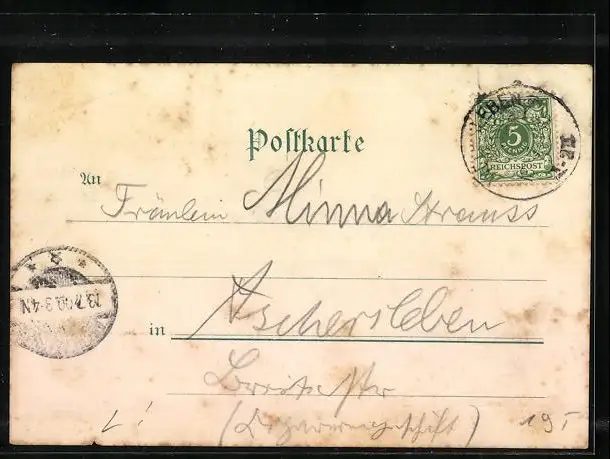 EBEN
5
REICHSPOST
Postkarte
An
Fräulein Minna Strauss
13.7.00.3-4N
in Aschersleben
Breitestr
(Cigarrengeschäft)
L!
19,-